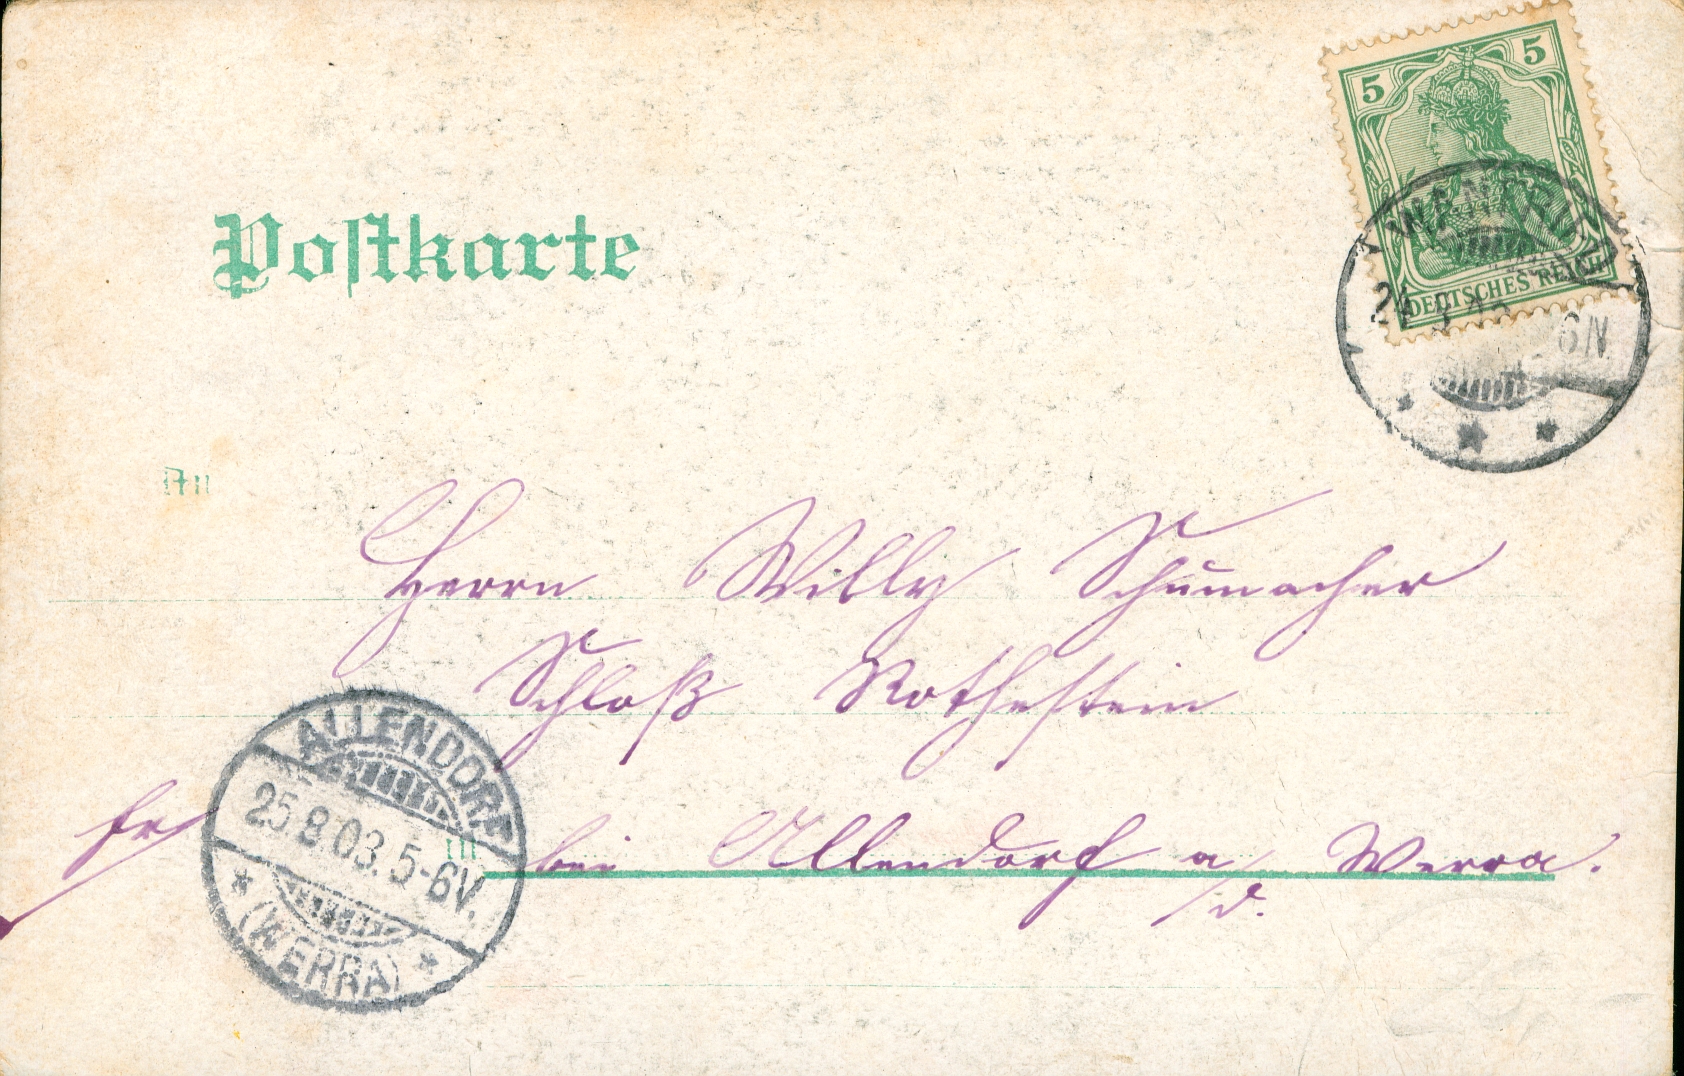 Postkarte
5 5
DEUTSCHES REICH
WANFRIED
24 8 03 6N
An
Herrn Willy Schumacher
Schloß Rothestein
fr
in bei Allendorf a/d. Werra.
ALLENDORF
25 8 03. 5-6V.
(WERRA)